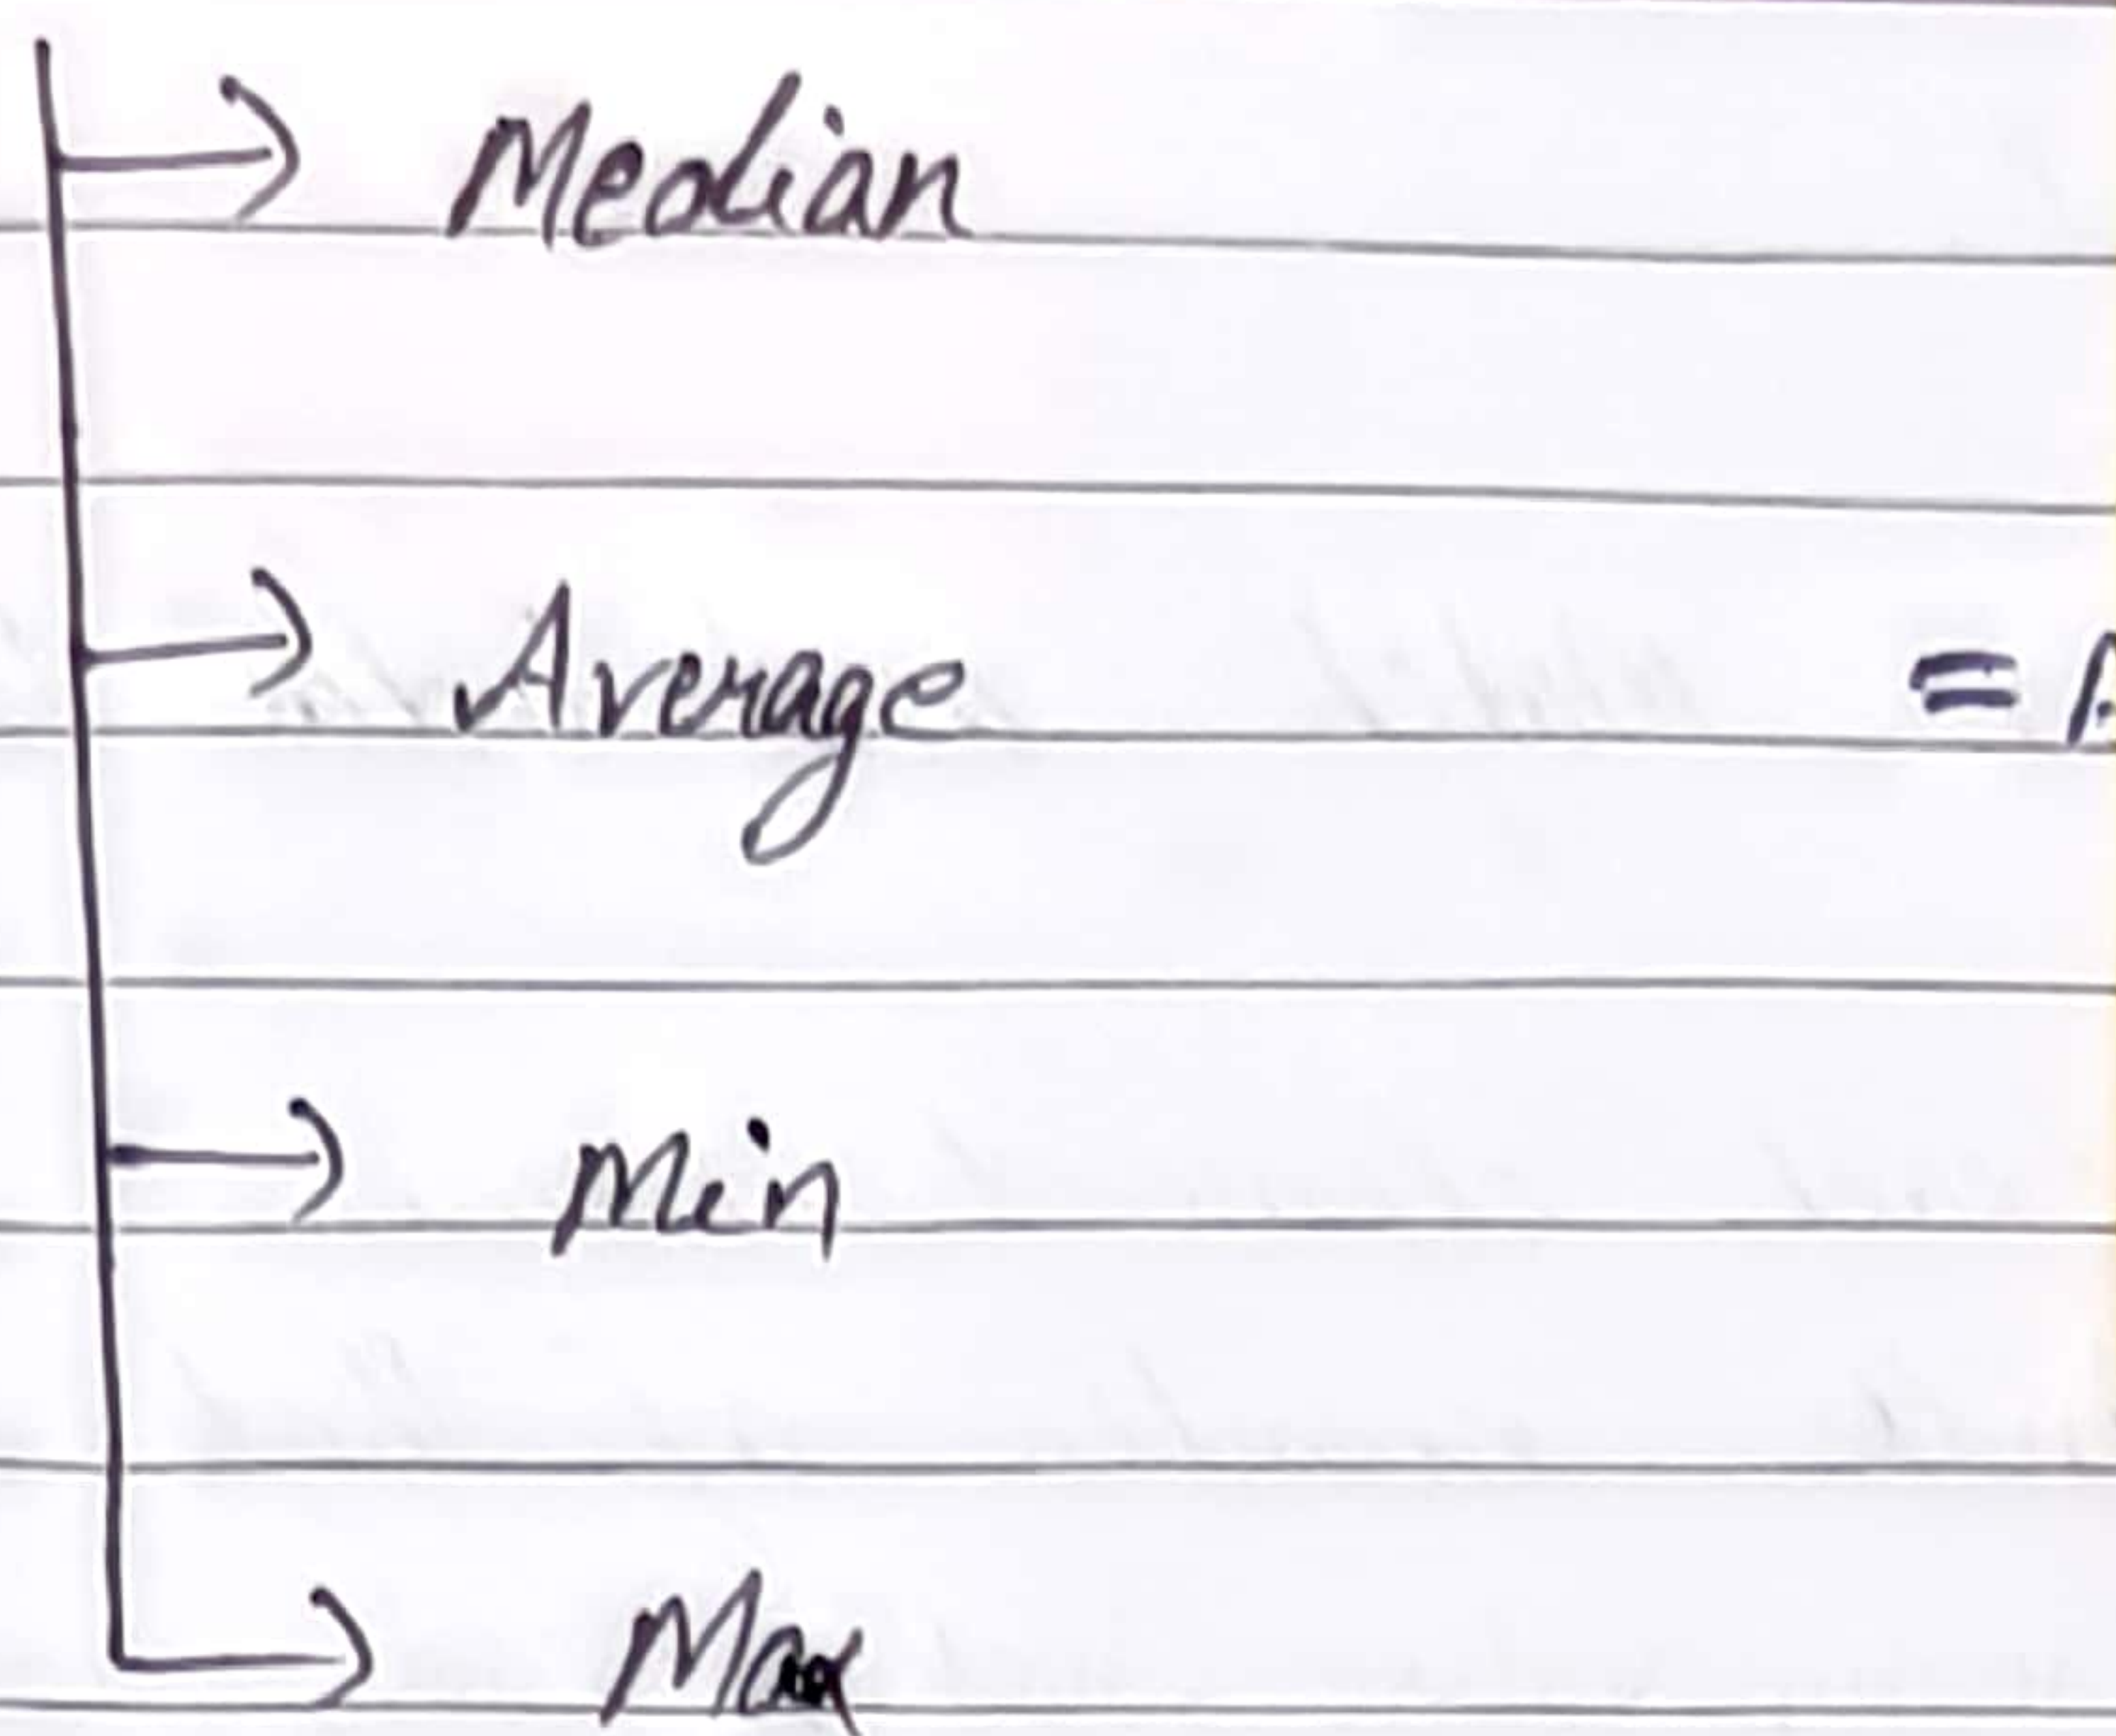 → Median
→ Average =
→ Min
→ Max